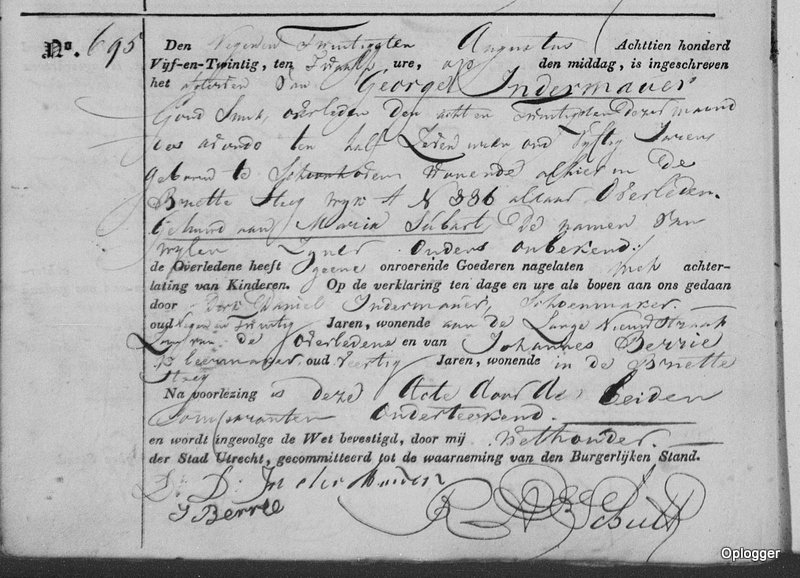 No. 695
Den Negen en Twintigsten Augustus Achttien honderd
Vijf-en-Twintig, ten Twaalf ure, op den middag, is ingeschreven
het afsterven van George Indermauer
Goud Smit, overleden den acht en Twintigsten dezer maand
des avonds ten half Zeven uren oud Vyftig Jaren
geboren te wonende alhier in de
Brutte Steeg wyk A N 336 aldaar Overleden.
Gehuwd aan Maria Subart, de namen van
wylen Zyner Ouders onbekend.
de Overledene heeft geene onroerende Goederen nagelaten met achter-
lating van Kinderen. Op de verklaring ten dage en ure als boven aan ons gedaan
door Daniel Indermauer, Schoenmaker.
oud Negen en Twintig Jaren, wonende aan de Lange Nieuwstraat
Zoon van de Overledene en van Johannes Berrie
Kleermaker, oud Veertig Jaren, wonende in de Brutte
Steeg
Na voorlezing is deze Acte door de beiden
Comparanten Onderteekend.
en wordt ingevolge de Wet bevestigd, door mij Wethouder
der Stad Utrecht, gecommitteerd tot de waarneming van den Burgerlijken Stand.
D: D: Indermauer
J Berree
Oplogger